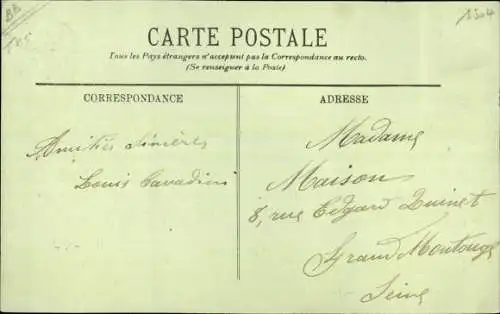 CARTE POSTALE
Tous les Pays étrangers n'acceptent pas la Correspondance au recto.
(Se renseigner à la Poste)
CORRESPONDANCE
Amitiés sincères
Louis Cavadini
ADRESSE
Madame
Maison
8, rue Edgard Quinet
Grand Montrouge
Seine